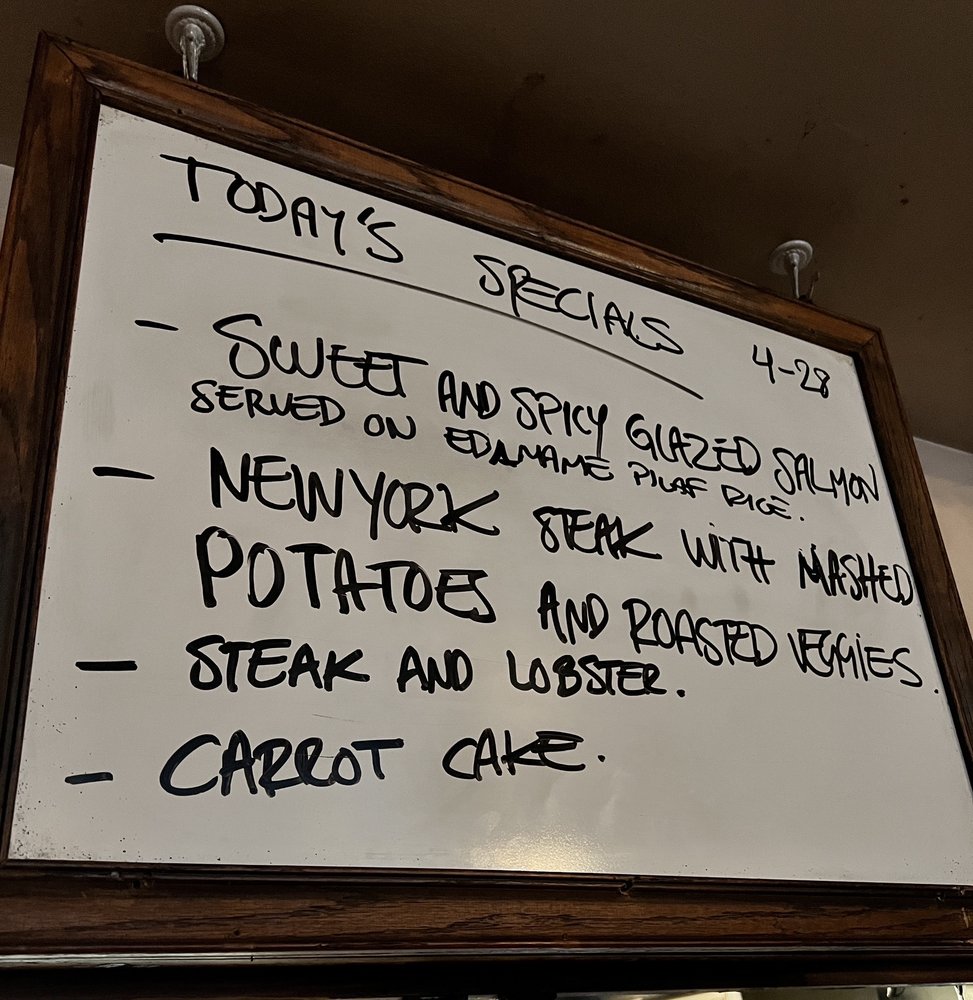 TODAY'S SPECIALS
4-28
- SWEET AND SPICY GLAZED SALMON
SERVED ON EDAMAME PILAF RICE.
- NEW YORK STEAK WITH MASHED
POTATOES AND ROASTED VEGGIES.
- STEAK AND LOBSTER.
- CARROT CAKE.